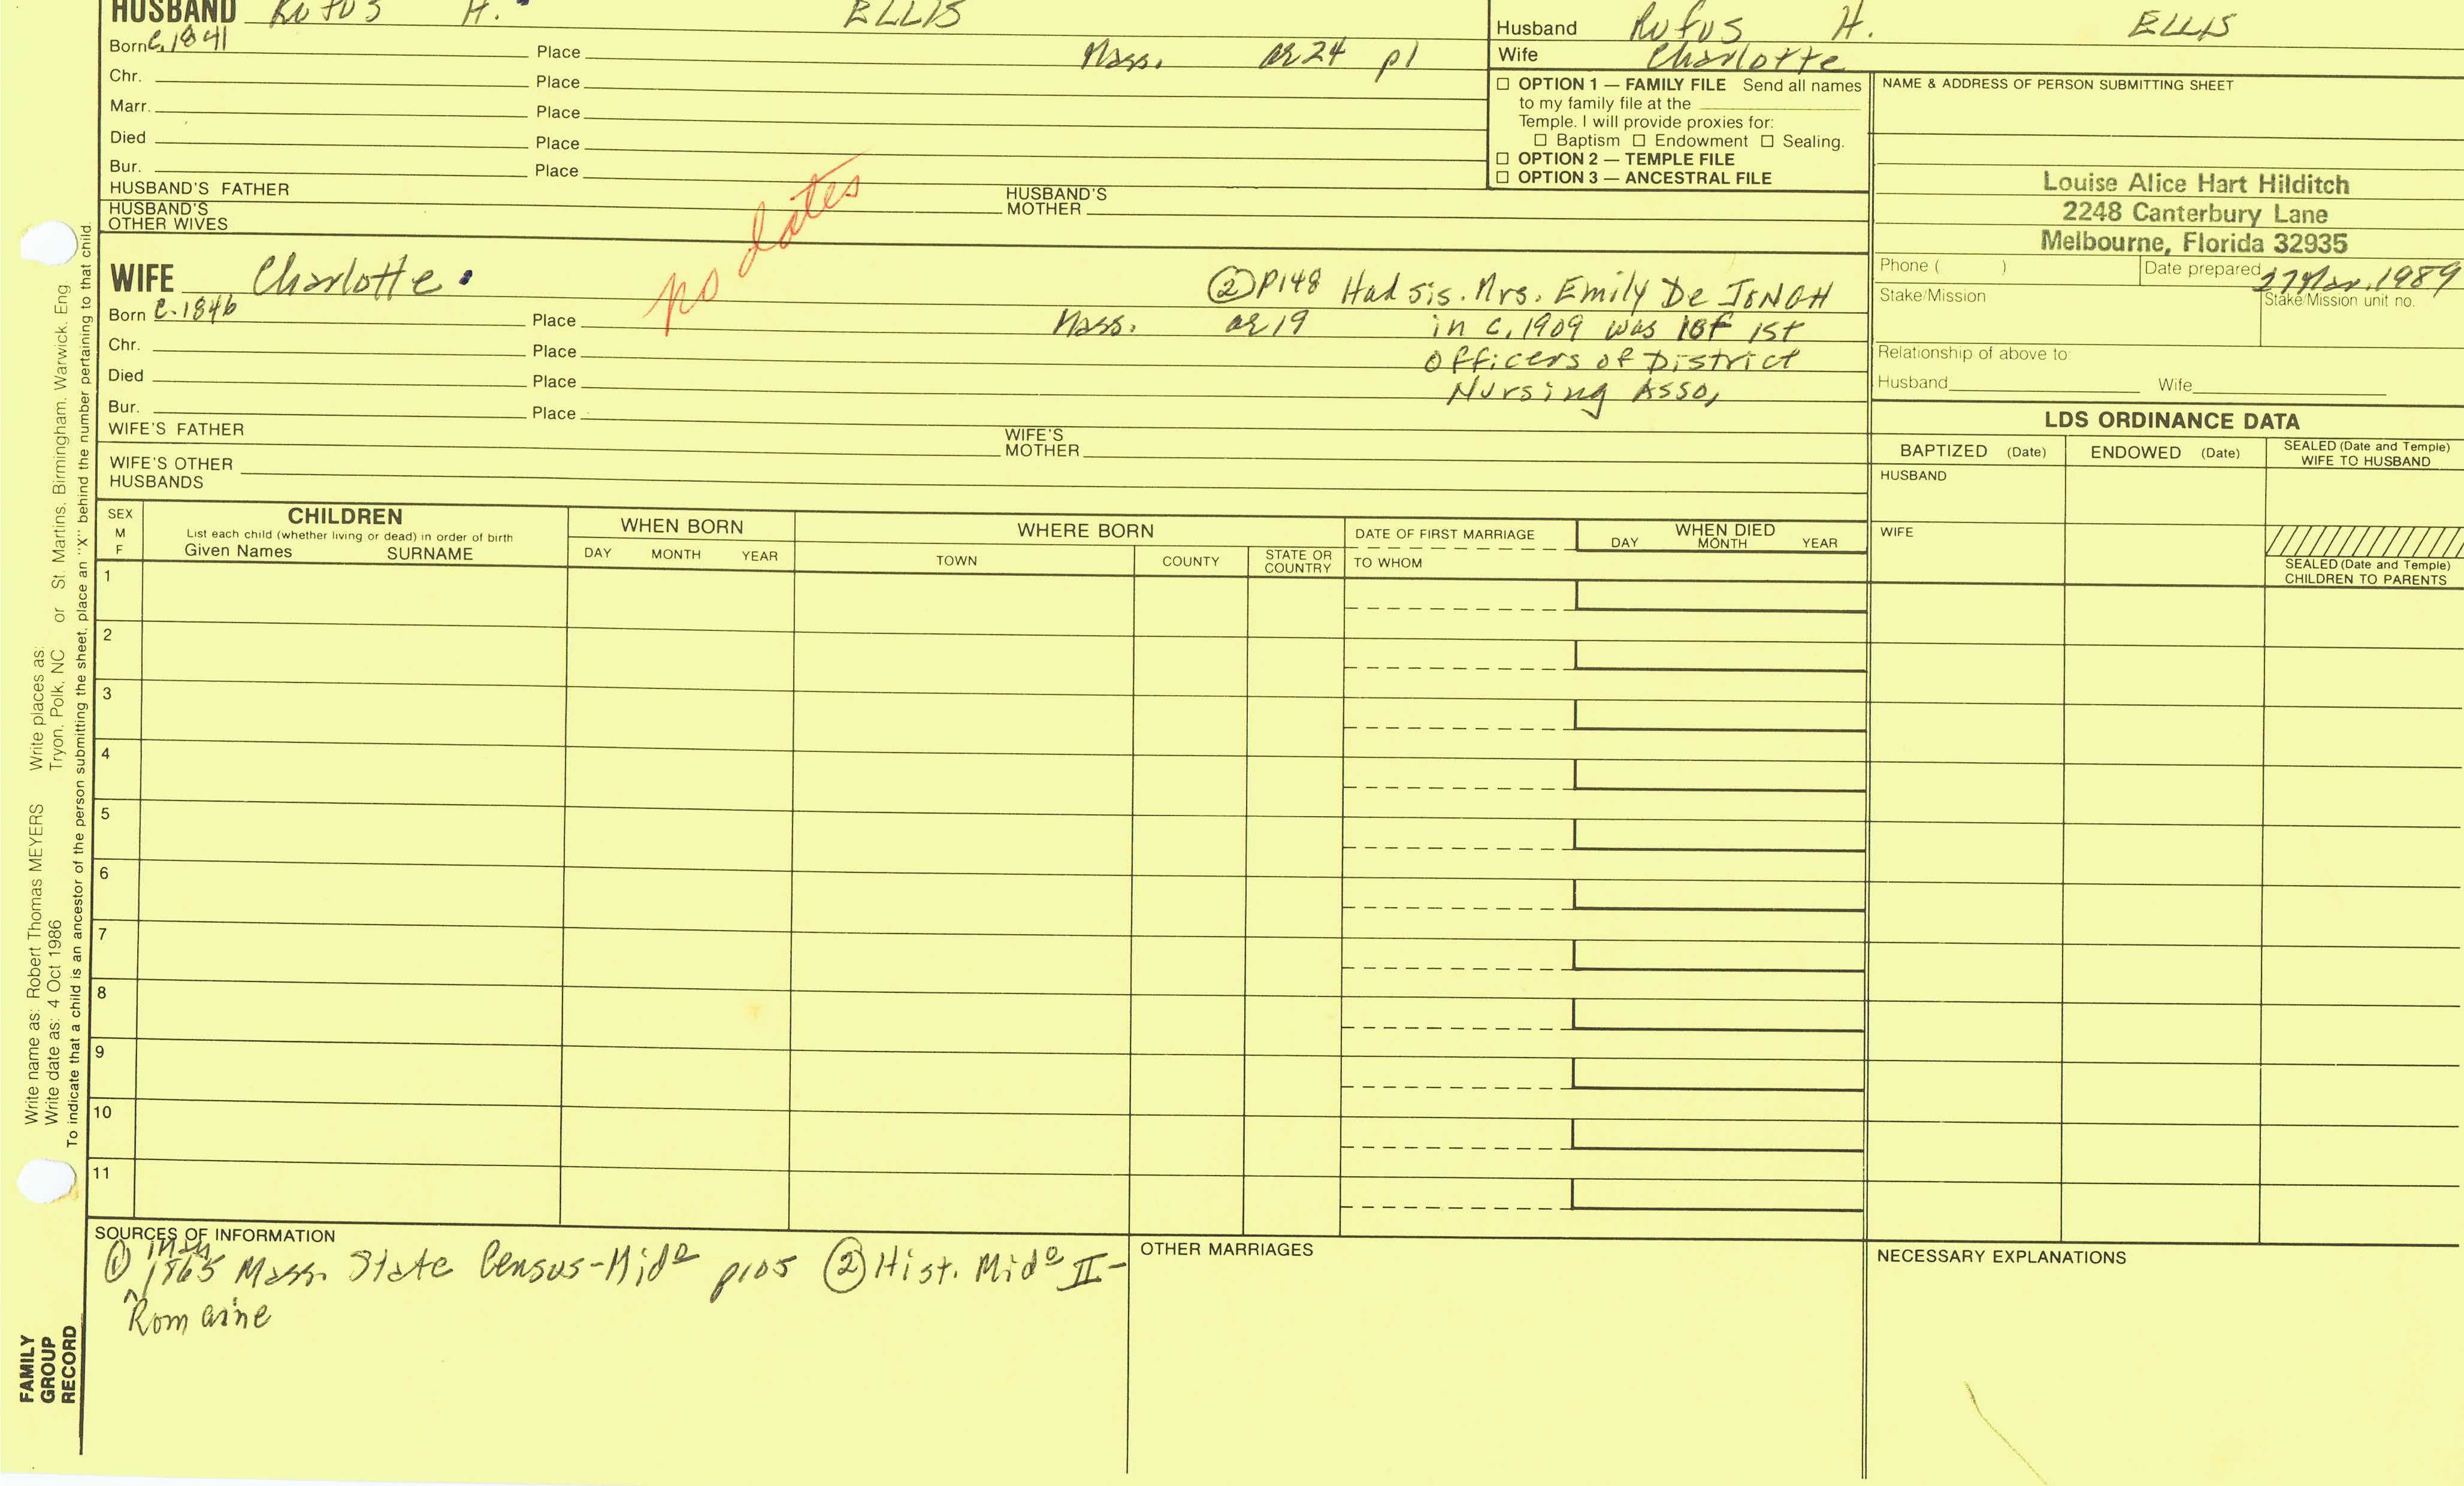 HUSBAND Rufus H. ELLIS
Born c. 1841 Place Mass. ae 24 p1
Chr. Place
Marr. Place
Died Place
Bur. Place
HUSBAND'S FATHER HUSBAND'S MOTHER
HUSBAND'S OTHER WIVES
no dates
WIFE Charlotte
② P148 Had sis. Mrs. Emily De
Born c. 1846 Place Mass. ae 19 in c. 1909 was 1 of 1st
Chr. Place Officers of District
Died Place Nursing Asso,
Bur. Place
WIFE'S FATHER WIFE'S MOTHER
WIFE'S OTHER HUSBANDS
Husband Rufus H. ELLIS
Wife Charlotte
☐ OPTION 1 — FAMILY FILE Send all names
to my family file at the
Temple. I will provide proxies for:
☐ Baptism ☐ Endowment ☐ Sealing.
☐ OPTION 2 — TEMPLE FILE
☐ OPTION 3 — ANCESTRAL FILE
NAME & ADDRESS OF PERSON SUBMITTING SHEET
Louise Alice Hart Hilditch
2248 Canterbury Lane
Melbourne, Florida 32935
Phone ( ) Date prepared 27 Mar. 1989
Stake/Mission Stake/Mission unit no.
Relationship of above to:
Husband Wife
LDS ORDINANCE DATA
BAPTIZED (Date) ENDOWED (Date) SEALED (Date and Temple)
WIFE TO HUSBAND
HUSBAND
WIFE
SEALED (Date and Temple)
CHILDREN TO PARENTS
SEX
M
F
CHILDREN
List each child (whether living or dead) in order of birth
Given Names SURNAME
WHEN BORN
DAY MONTH YEAR
WHERE BORN
TOWN COUNTY STATE OR COUNTRY
DATE OF FIRST MARRIAGE
TO WHOM
WHEN DIED
DAY MONTH YEAR
1
2
3
4
5
6
7
8
9
10
11
SOURCES OF INFORMATION
① 1865 Mass. State Census-Midᵒ p105 ② Hist. Midᵒ II-
Romaine
OTHER MARRIAGES
NECESSARY EXPLANATIONS
Write name as: Robert Thomas MEYERS Write places as:
Write date as: 4 Oct 1986 Tryon, Polk, NC or St. Martins, Birmingham, Warwick, Eng
To indicate that a child is an ancestor of the person submitting the sheet, place an "X" behind the number pertaining to that child.
FAMILY
GROUP
RECORD